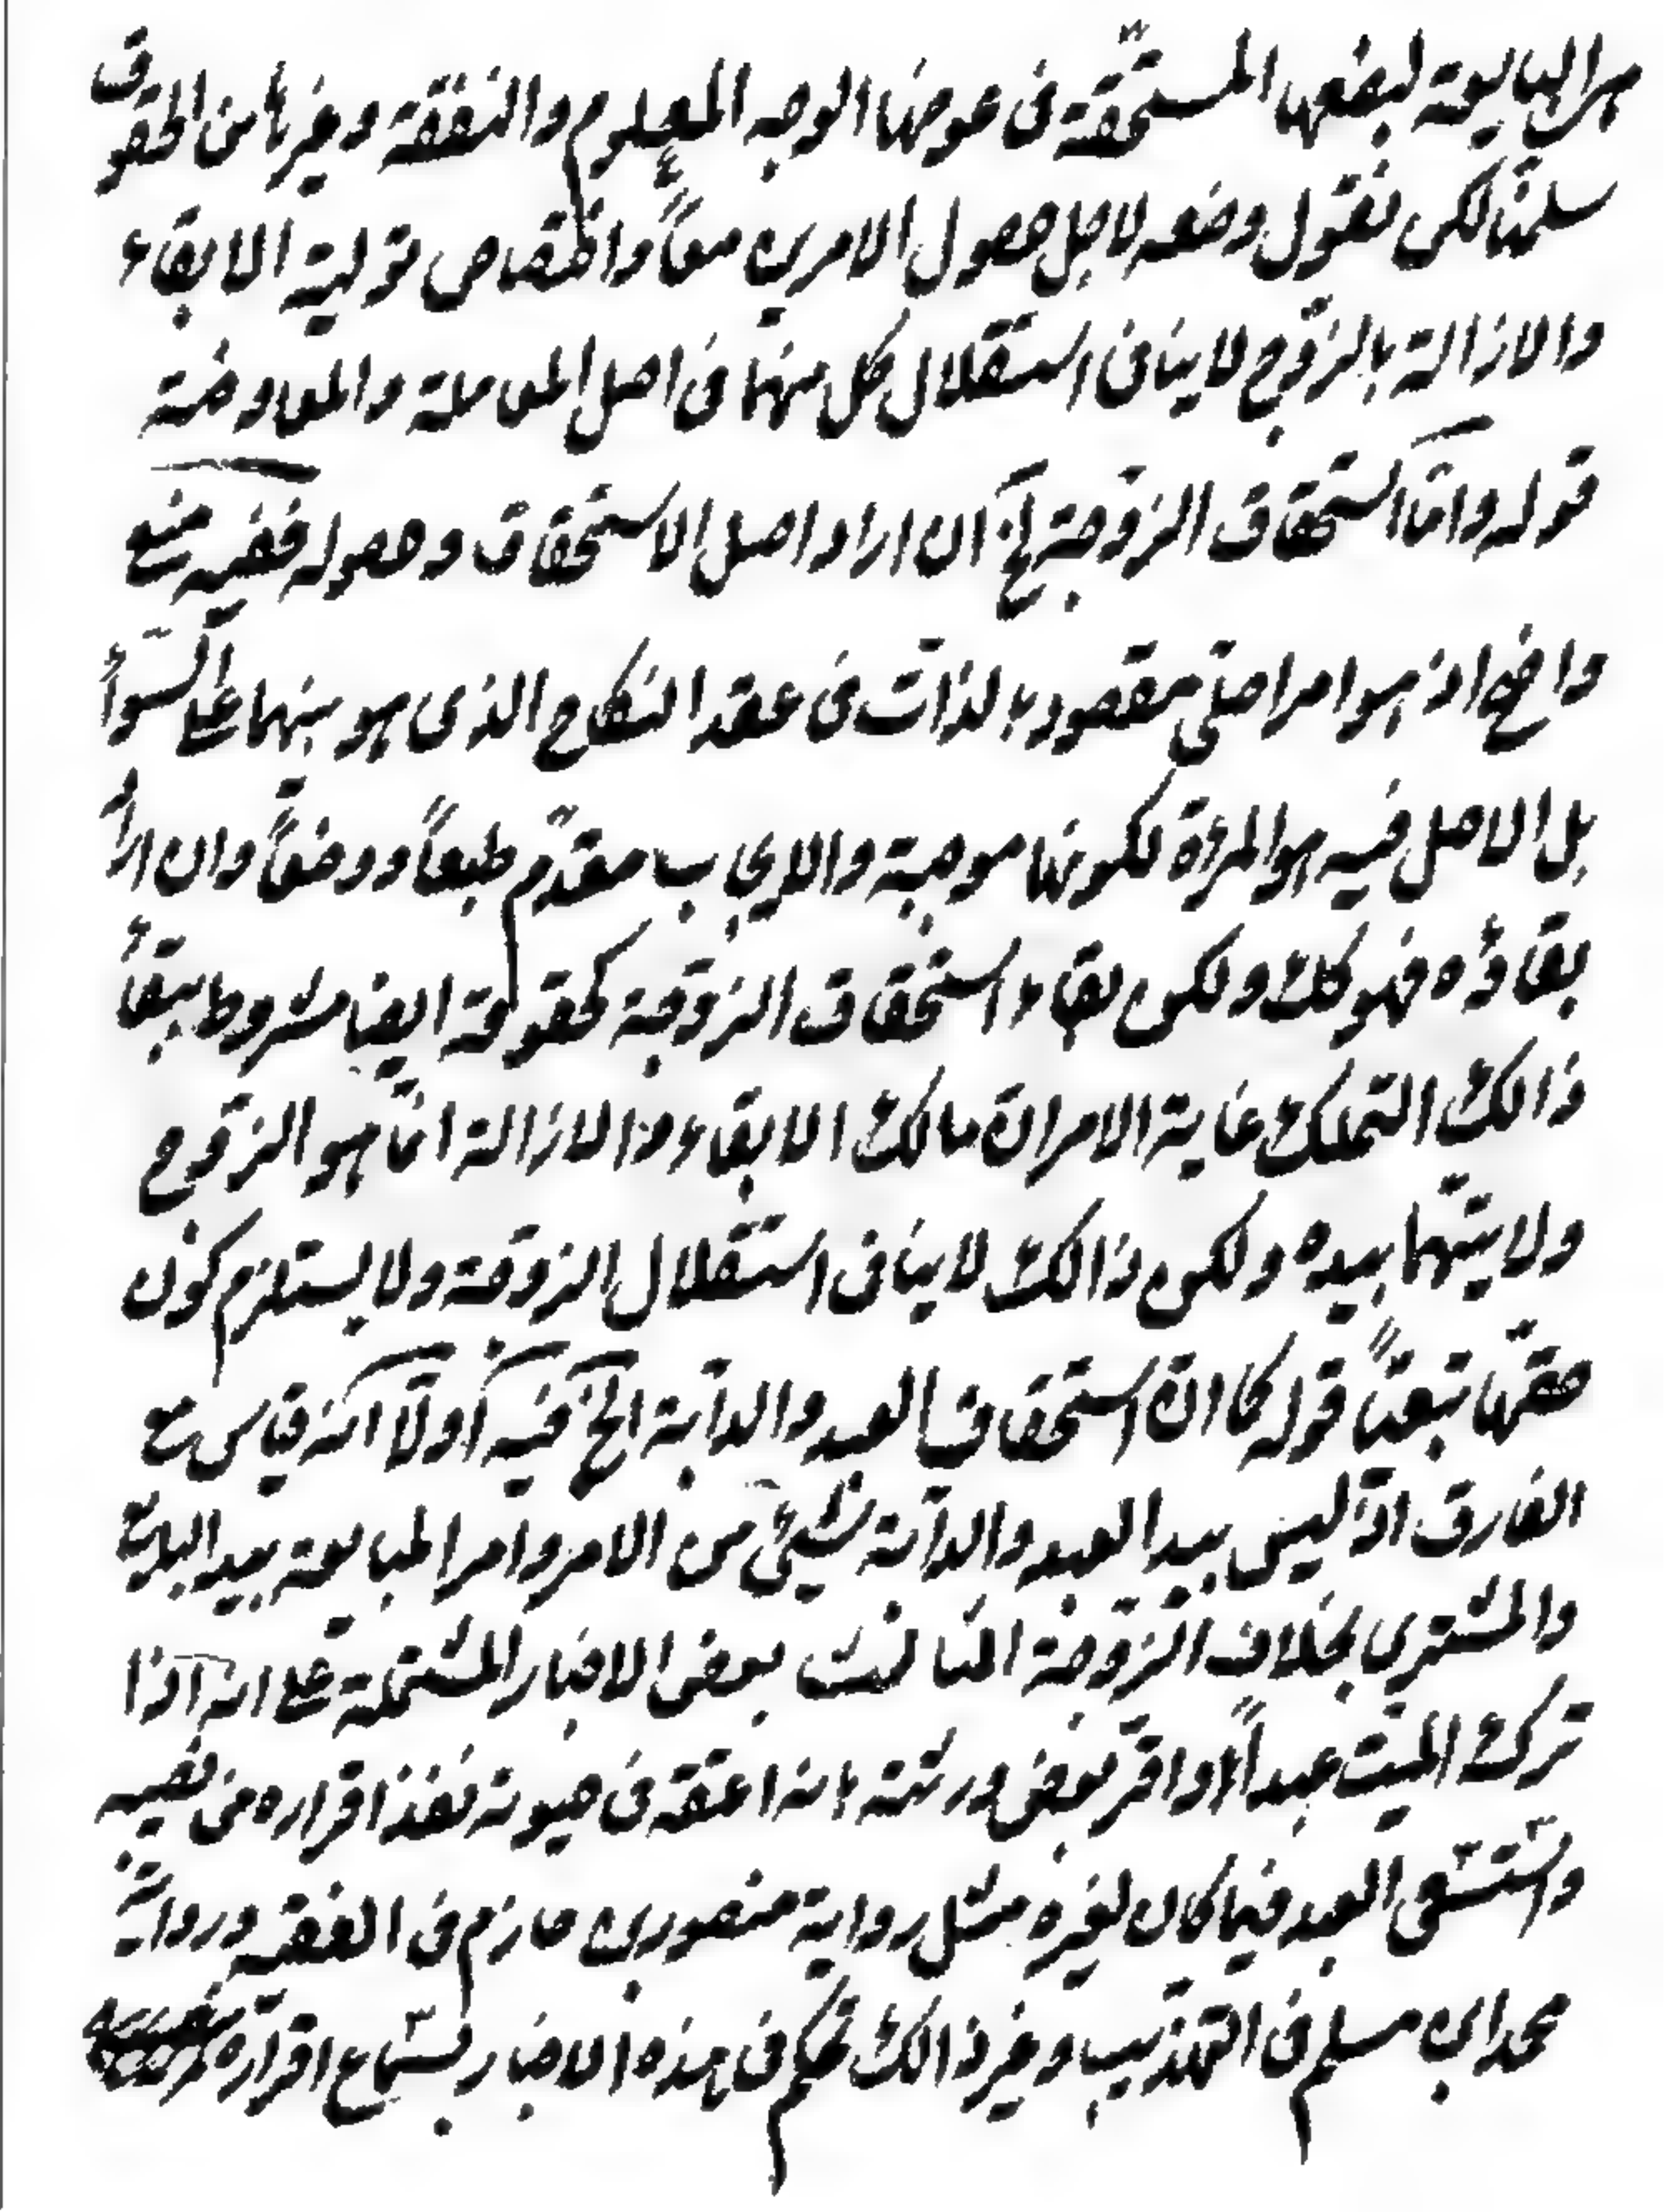 هى البايعة لبضعها المستحقة فى عوضها الوجه المعلوم والنفقة وغيرها من الحقوق
سلمنا لكن نقول وضعه لاجل حصول الامرين معاً واختصاص تولية الابقاء
والازالة بالزّوج لا ينافى استقلال كل منهما فى اصل المعاملة والمعاوضة
قوله وامّا استحقاق الزّوجة الخ ان اراد اصل الاستحقاق وحصوله ففيه منع
واضح اذ هو امر اصلى مقصود بالذات فى عقد النكاح الذى هو بينهما على السّواء
بل الاصل فيه هو المرأة لكونها موجبة والايجاب مقدّم طبعاً ووضعاً وان اراد
بقاؤه فهو كك ولكن بقاء استحقاق الزّوجة كحقوقه ايضا مشروط ببقاء
ذالك التملك غاية الامر انّ مالك الابقاء والازالة انّما هو الزّوج
ولايتهما بيده ولكن ذالك لا ينافى استقلال الزوجة ولا يستلزم كون
حقّها تبعيّاً قوله كما انّ استحقاق العبد والدابّة الخ فيه اولاً انّه قياس مع
الفارق اذ ليس بيد العبد والدابّة شيئ من الامر وامر المبايعة بيد البايع
والمشترى بخلاف الزّوجة الثالث بعض الاخبار المشتملة على انه اذا
ترك الميّت عبداً واقرّ بعض ورثته بانه اعتقه فى حيوته نفذ اقراره فى نصيبه
واستسعى العبد فيما كان لغيره مثل رواية منصور بن حازم فى الفقيه ورواية
محمد ابن مسلم فى التهذيب وغير ذالك تحكم فى هذه الاخبار بسماع اقراره